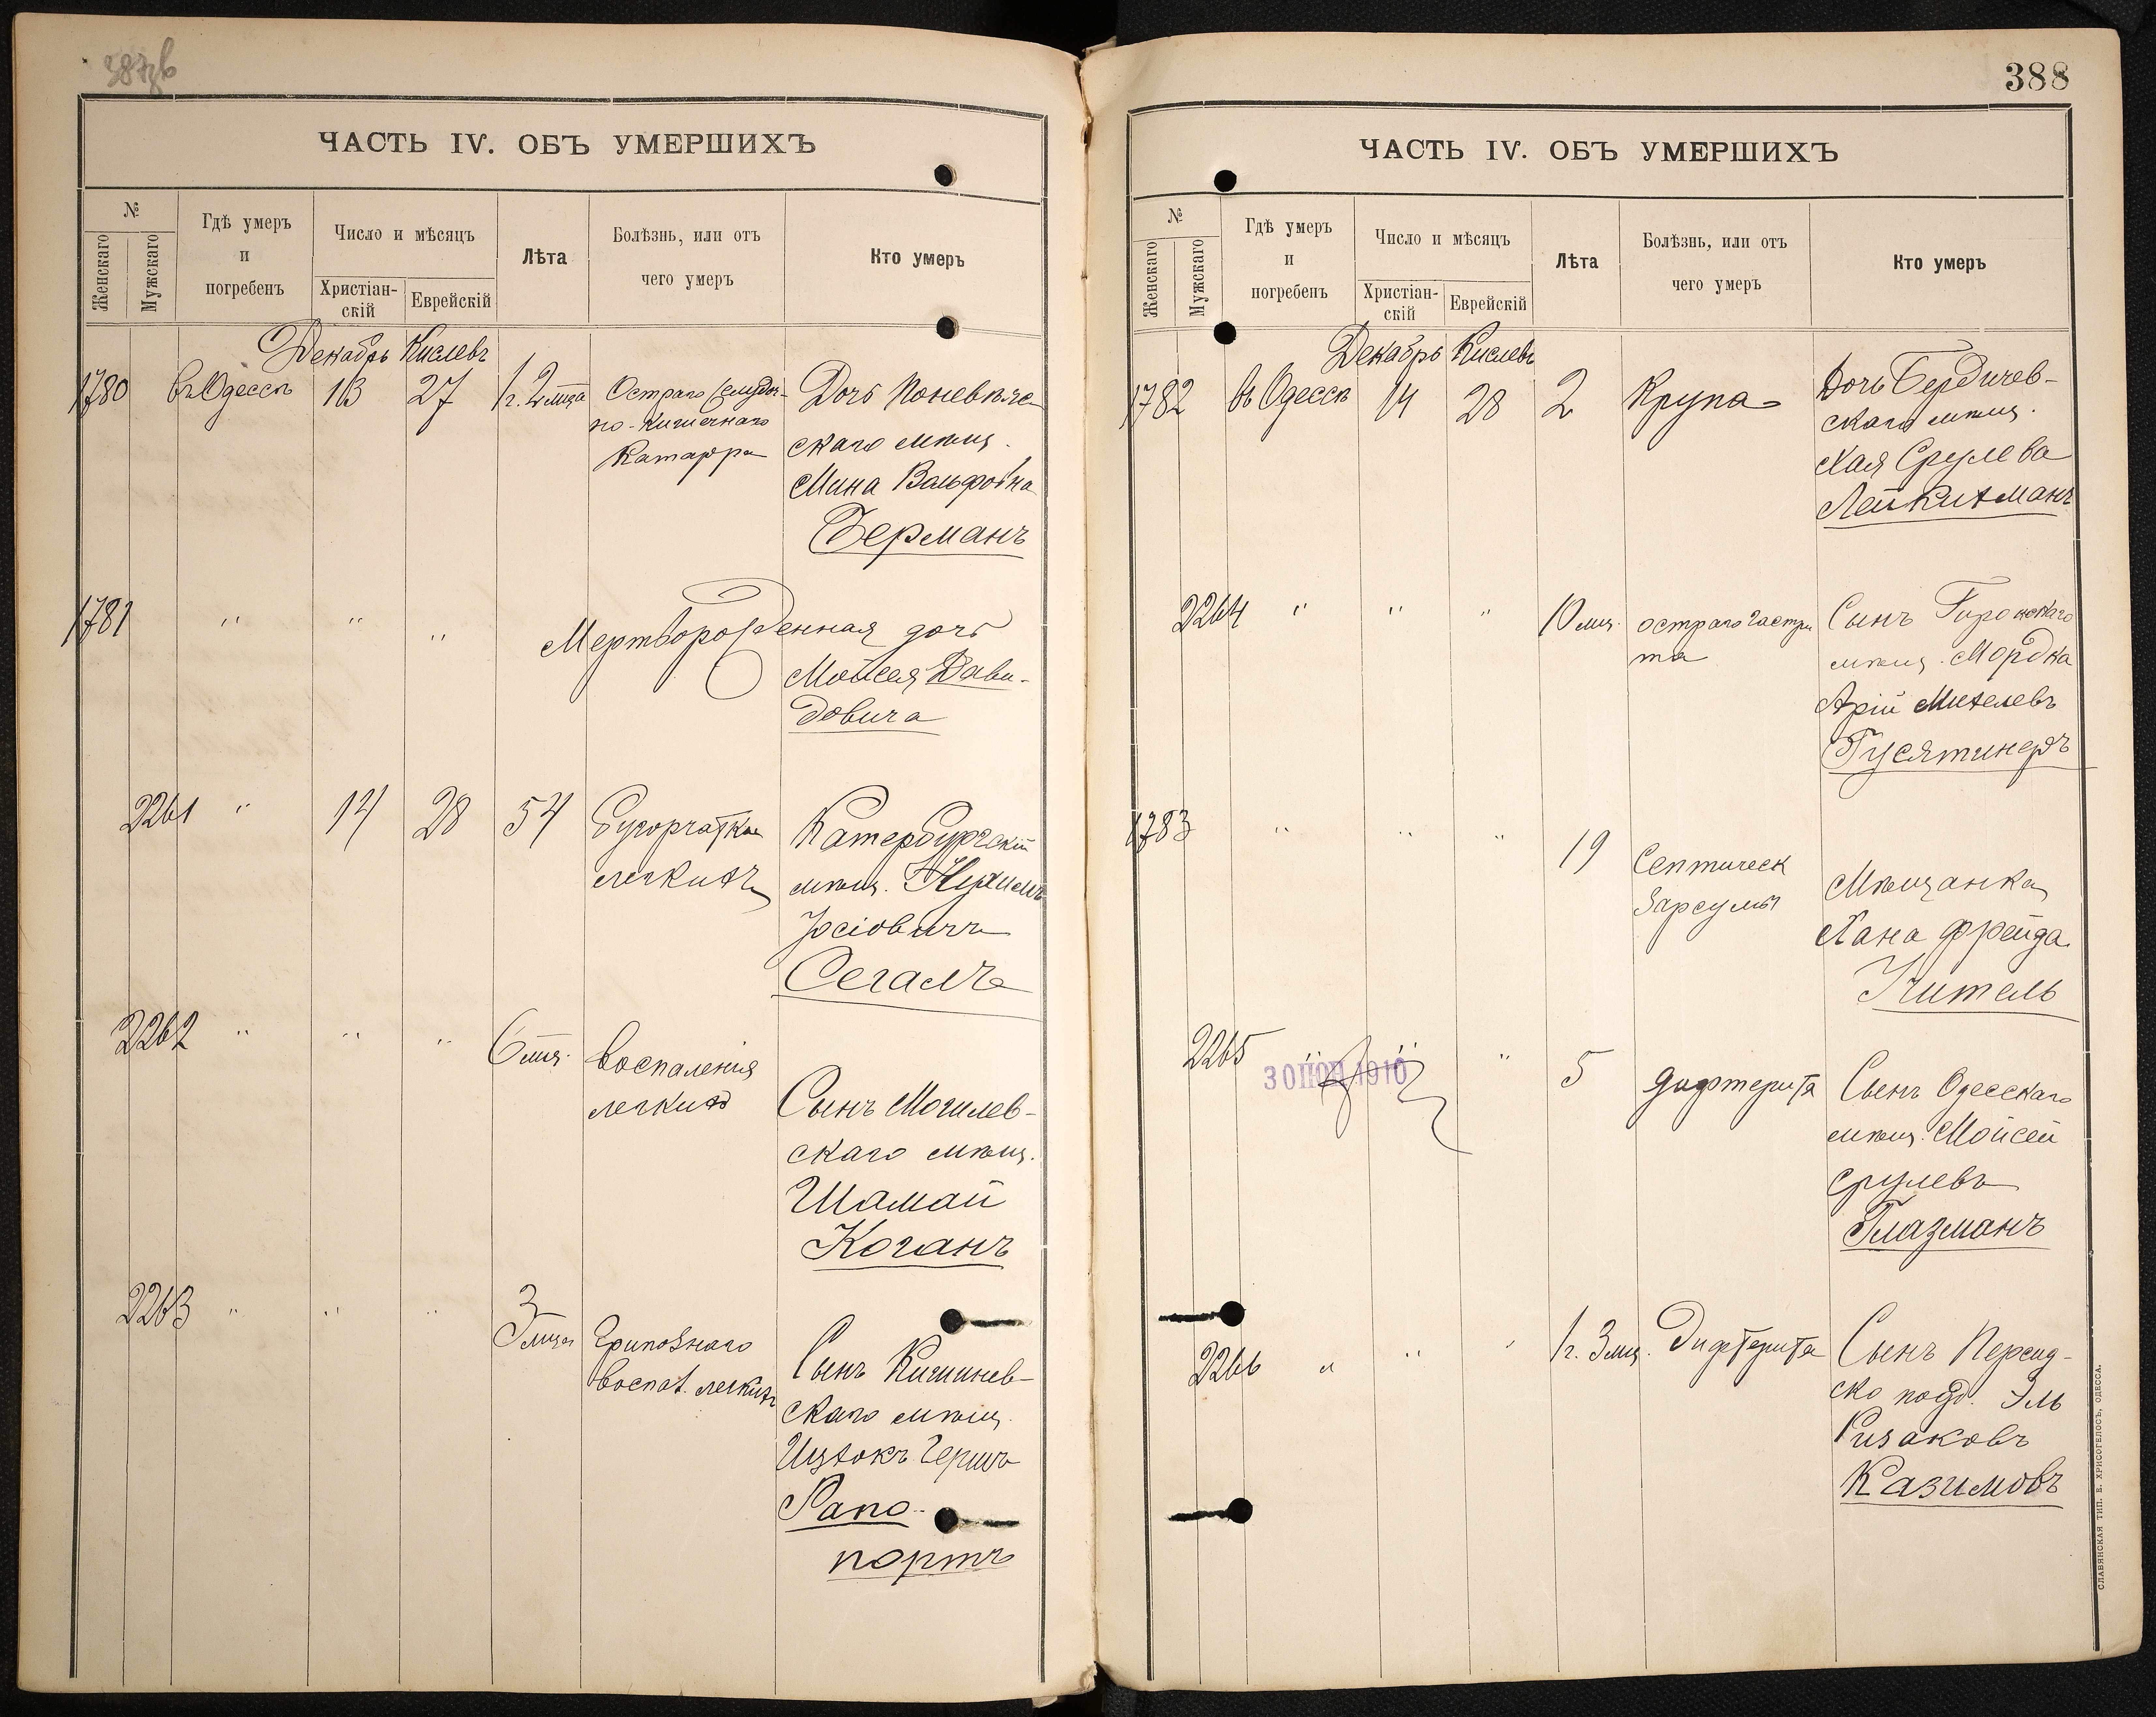 387 об
ЧАСТЬ IV. ОБЪ УМЕРШИХЪ
№
Женскаго
Мужскаго
Гдѣ умеръ
и
погребенъ
Число и мѣсяцъ
Христіан-
скій
Еврейскій
Лѣта
Болѣзнь, или отъ
чего умеръ
Кто умеръ
Декабрь Кислевъ
1780 въ Одессѣ 13 27 1 г. 2 мца
Остраго желудоч-
но-кишечнаго
катарра
Дочь Поневѣже-
скаго мѣщ.
Мина Вольфовна
Берманъ
1781 " " "
Мертворожденная дочь
Мойсея Дави-
довича
2261 " 14 28 54
Бугорчатка
легкихъ
Катербургскій
мѣщ. Нухимъ
Іосіовичъ
Сегалъ
2262 " " " 6 мц.
воспаленія
легкихъ
Сынъ Могилев-
скаго мѣщ.
Шамай
Коганъ
2263 " " " 3
3 мца
Грипознаго
воспал. легкихъ
Сынъ Кишинев-
скаго мѣщ.
Ицхокъ Гершъ
Рапо-
портъ
388
ЧАСТЬ IV. ОБЪ УМЕРШИХЪ
№
Женскаго
Мужскаго
Гдѣ умеръ
и
погребенъ
Число и мѣсяцъ
Христіан-
скій
Еврейскій
Лѣта
Болѣзнь, или отъ
чего умеръ
Кто умеръ
Декабрь Кислевъ
1782 въ Одессѣ 14 28 2 Крупа
Дочь Бердичев-
скаго мѣщ.
Хая Срулева
Лейкихманъ
2264 " " " 10 мц.
остраго гастри
та
Сынъ
мѣщ. Мордка
Арій Михелевъ
Гусятинеръ
1783 " " " 19
Септическ
Мѣщанка
Хана Фрейда
Учитель
2265 " " " 5 дифтерита
30 ІЮН 1910
Сынъ Одесскаго
мѣщ. Мойсей
Срулевъ
Глазманъ
2266 " " " 1 г. 3 мц. Дифтерита
Сынъ Персид-
ско подд. Эль
Ризаковъ
Казимовъ
СЛАВЯНСКАЯ ТИП. Е. ХРИСОГЕЛОСЪ, ОДЕССА.